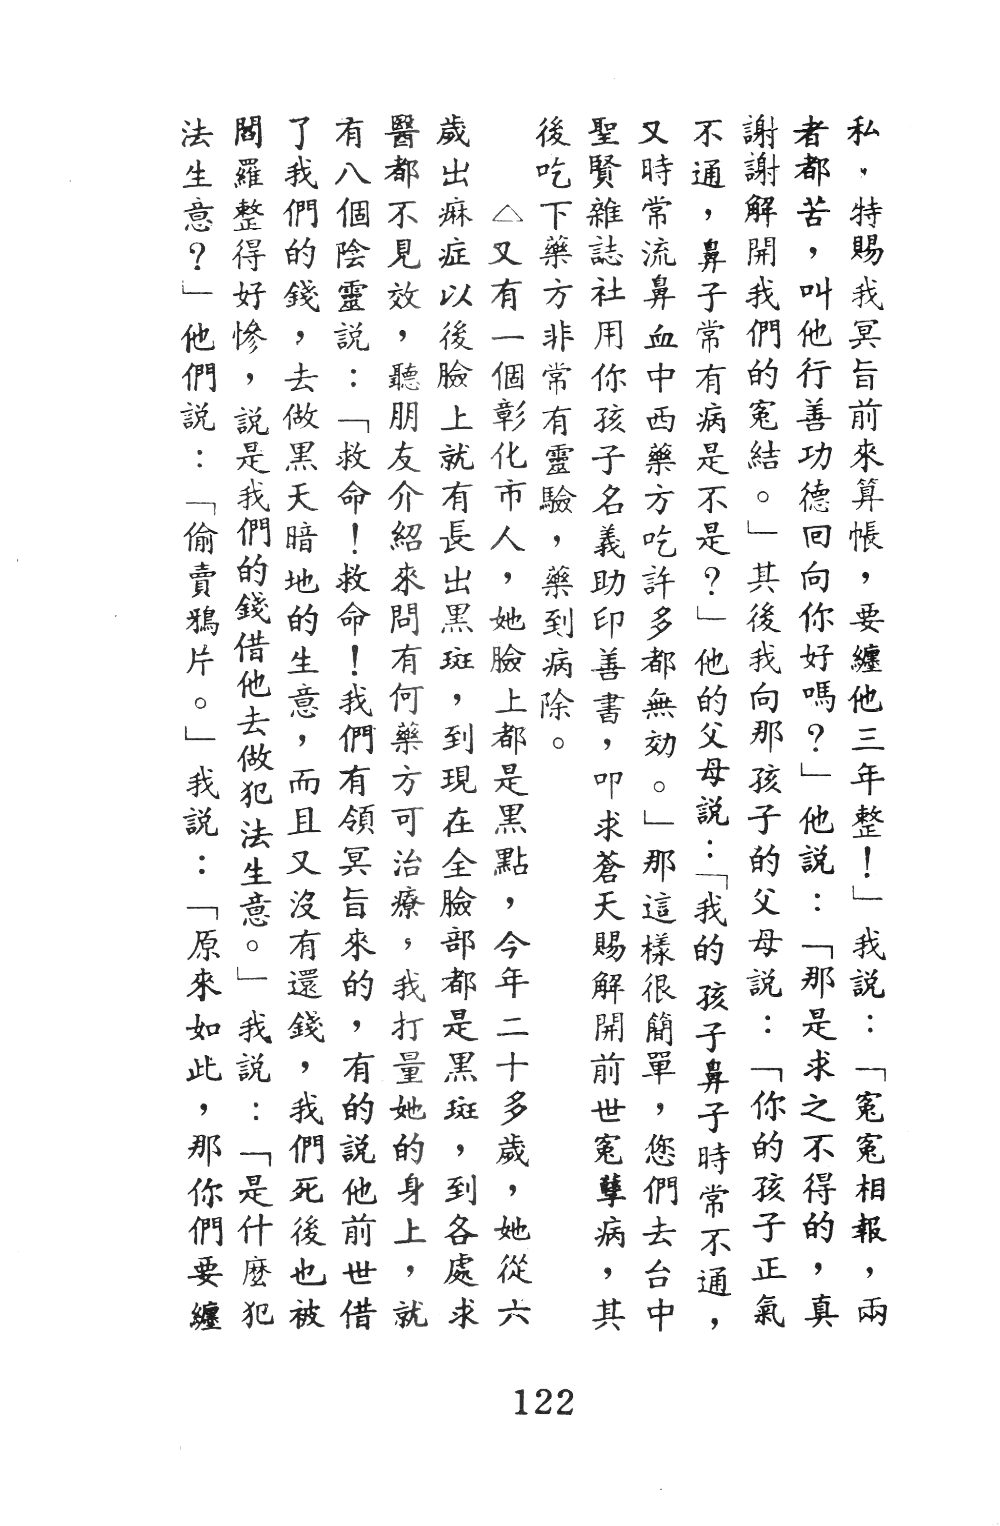 私，特賜我冥旨前來算帳，要纏他三年整！」我説：「寃寃相報，兩
者都苦，叫他行善功德回向你好嗎？」他説：「那是求之不得的，真
謝謝解開我們的寃結。」其後我向那孩子的父母説：「你的孩子正氣
不通，鼻子常有病是不是？」他的父母説：「我的孩子鼻子時常不通，
又時常流鼻血中西藥方吃許多都無効。」那這樣很簡單，您們去台中
聖賢雜誌社用你孩子名義助印善書，叩求蒼天賜解開前世寃孽病，其
後吃下藥方非常有靈驗，藥到病除。
△又有一個彰化市人，她臉上都是黑點，今年二十多歲，她從六
歲出痳症以後臉上就有長出黑斑，到現在全臉部都是黑斑，到各處求
醫都不見效，聽朋友介紹來問有何藥方可治療，我打量她的身上，就
有八個陰靈説：「救命！救命！我們有領冥旨來的，有的説他前世借
了我們的錢，去做黑天暗地的生意，而且又沒有還錢，我們死後也被
閻羅整得好慘，說是我們的錢借他去做犯法生意。」我説：「是什麼犯
法生意？」他們説：「偷賣鴉片。」我説：「原來如此，那你們要纏
122